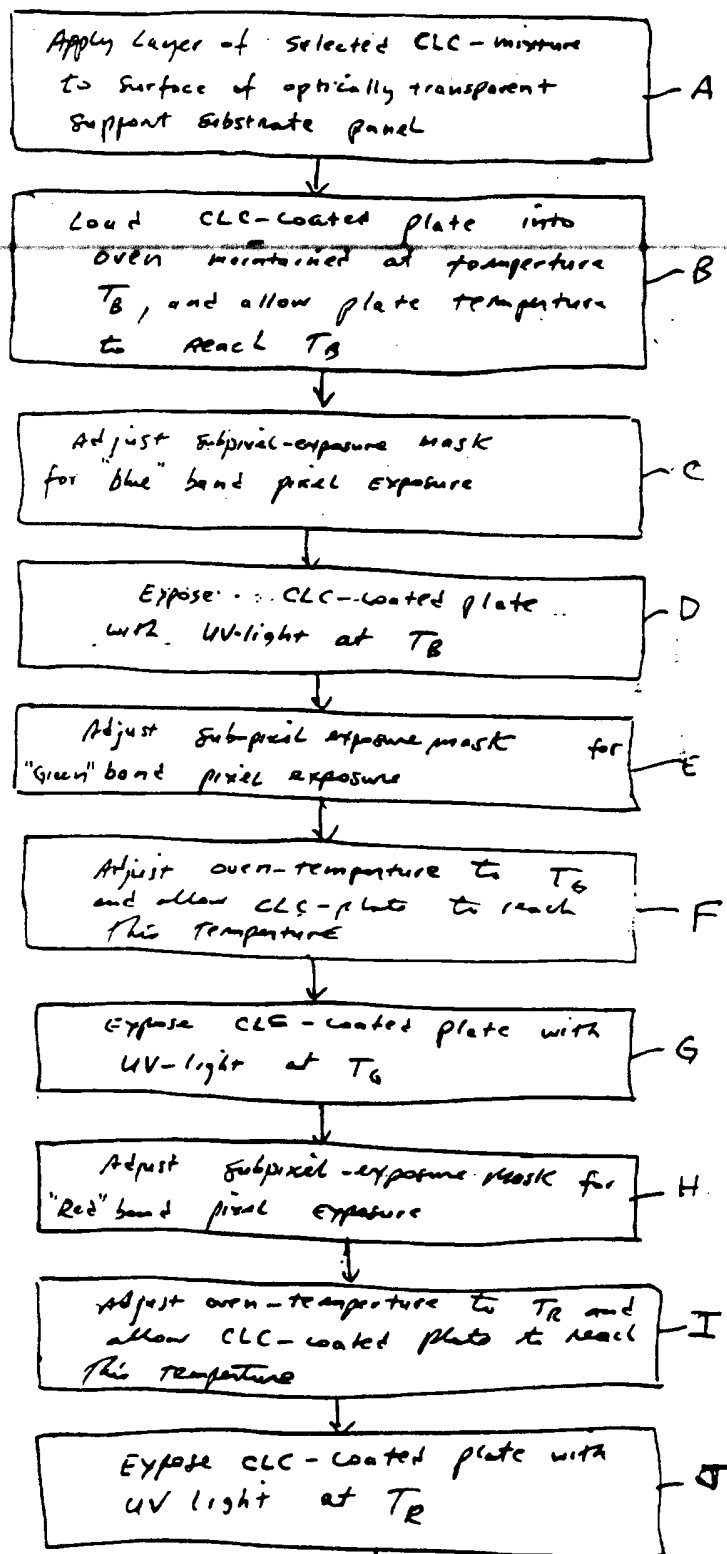 Apply Layer of selected CLC-mixture
to surface of optically transparent
support substrate panel
A
Load CLC-coated plate into
oven maintained at tomperture
TB, and allow plate temperture
to reach TB
B
Adjust subpixel-exposure mask
for "blue" band pixel exposure
C
Expose CLC-coated plate
with UV-light at TB
D
Adjust sub-pixel exposure mask for
"Green" band pixel exposure
E
Adjust oven-temperture to TG
and allow CLC-plate to reach
This Temperture
F
Expose CLC-coated plate with
UV-light at TG
G
Adjust subpixel-exposure mask for
"Red" band pixel exposure
H
Adjust oven-temperture to TR and
allow CLC-coated plate to reach
This temperture
I
Expose CLC-coated plate with
UV light at TR
J